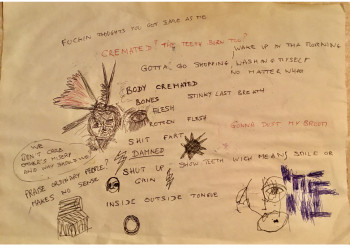 FUCKIN THOUGHTS YOU GOT SAME AS ME
CREMATED? THE TEETH BURN TOO?
WAKE UP IN THA MORNING
GOTTA GO SHOPPING WASHING MYSELF
NO MATTER WHAT
BODY CREMATED
BONES STINKY LAST BREATH
FLESH
ROTTEN FLESH
GONNA SPIT MY BROTH
SHIT FART
DAMNED
SHOW TEETH WICH MEANS SMILE OR
WE DON'T CARE
OTHERS MISERY
AND WHY SHOULD WE
SHUT UP
GAIN
PRAISE ORDINARY PEOPLE?
MAKES NO SENSE
INSIDE OUTSIDE TONGUE